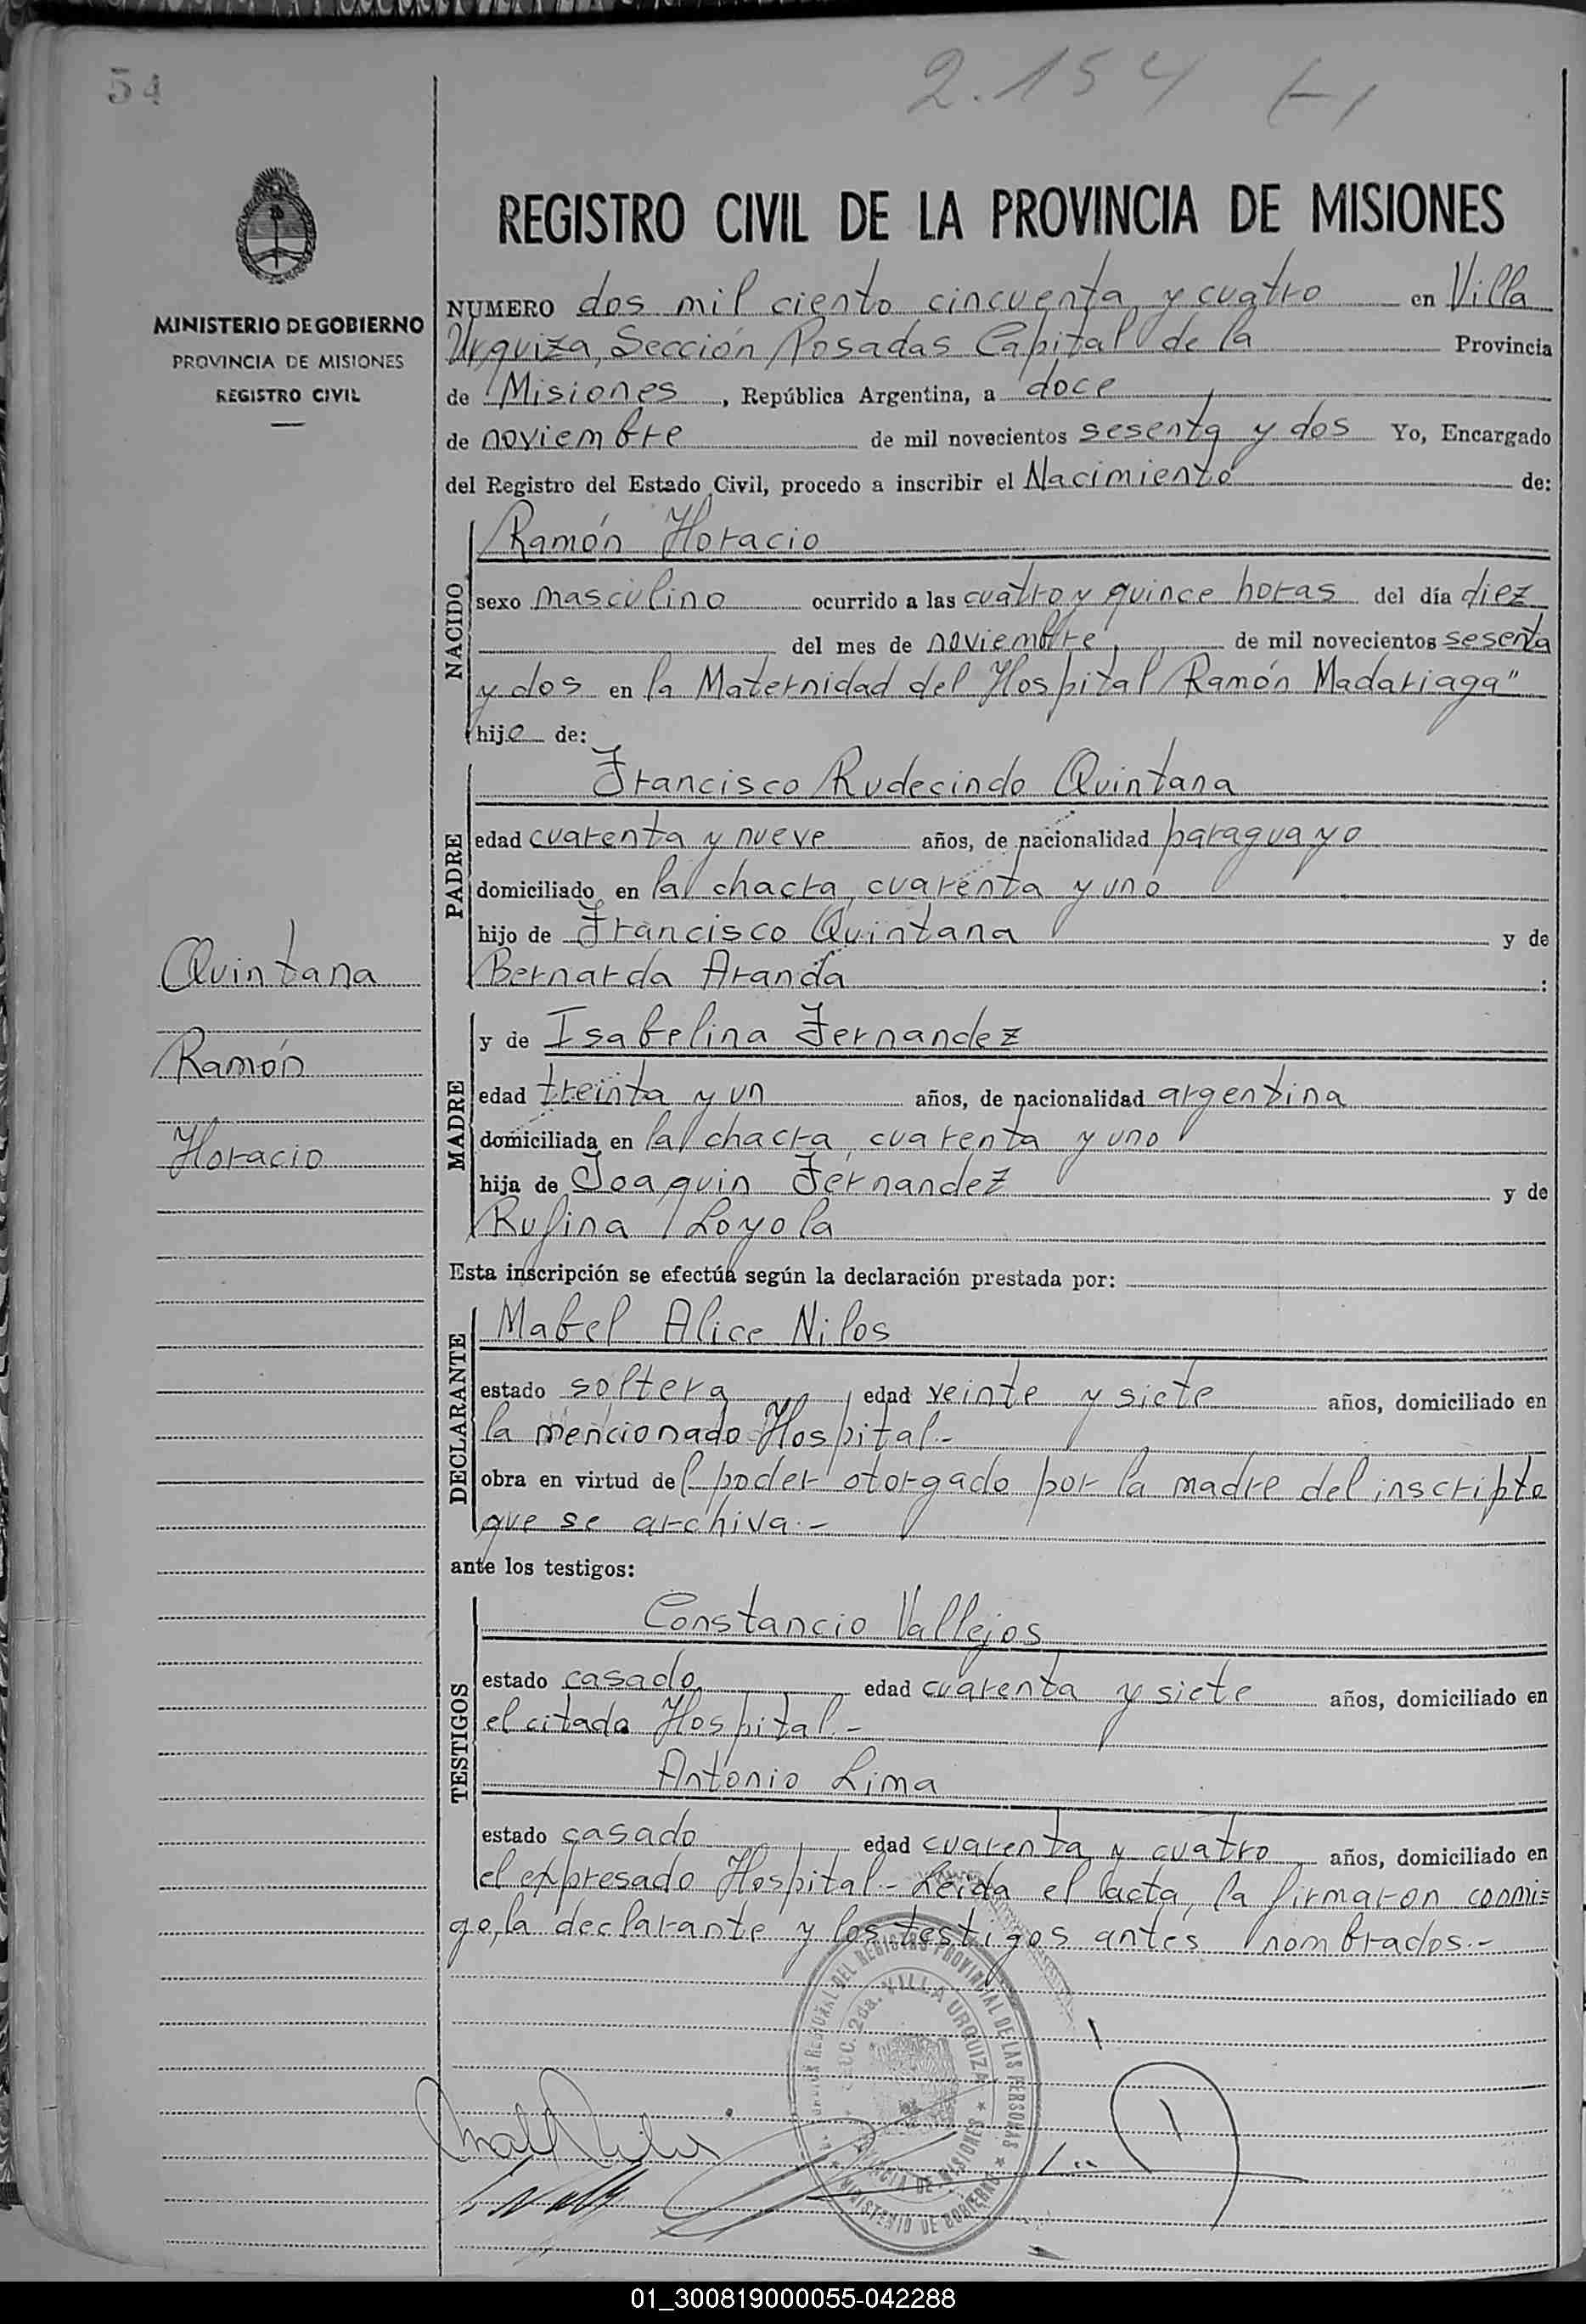 54
2.154
REGISTRO CIVIL DE LA PROVINCIA DE MISIONES
MINISTERIO DE GOBIERNO
PROVINCIA DE MISIONES
REGISTRO CIVIL
NUMERO dos mil ciento cincuenta y cuatro en Villa
Urquiza, Sección Posadas Capital de la Provincia
de Misiones, República Argentina, a doce
de noviembre de mil novecientos sesenta y dos Yo, Encargado
del Registro del Estado Civil, procedo a inscribir el Nacimiento de:
NACIDO
Ramón Horacio
sexo masculino ocurrido a las cuatro y quince horas del día diez
del mes de noviembre, de mil novecientos sesenta
y dos en la Maternidad del Hospital Ramón Madariaga"
hijo de:
PADRE
Francisco Rudecindo Quintana
edad cuarenta y nueve años, de nacionalidad paraguayo
domiciliado en la chacra cuarenta y uno
hijo de Francisco Quintana y de
Bernarda Aranda :
Quintana
Ramón
Horacio
MADRE
y de Isabelina Fernandez
edad treinta y un años, de nacionalidad argentina
domiciliada en la chacra cuarenta y uno
hija de Joaquin Fernandez y de
Rufina Loyola
Esta inscripción se efectúa según la declaración prestada por:
DECLARANTE
Mabel Alice Nilos
estado soltera edad veinte y siete años, domiciliado en
la mencionado Hospital.-
obra en virtud del poder otorgado por la madre del inscripto
que se archiva.-
ante los testigos:
TESTIGOS
Constancio Vallejos
estado casado edad cuarenta y siete años, domiciliado en
el citado Hospital.-
Antonio Lima
estado casado edad cuarenta y cuatro años, domiciliado en
el expresado Hospital.- Leida el acta, la firmaron conmi=
go, la declarante y los testigos antes nombrados.-
REGIONAL DEL REGISTRO PROVINCIAL DE LAS PERSONAS
SECC. 2da. VILLA URQUIZA
PROVINCIA DE MISIONES
MINISTERIO DE GOBIERNO
01_300819000055-042288